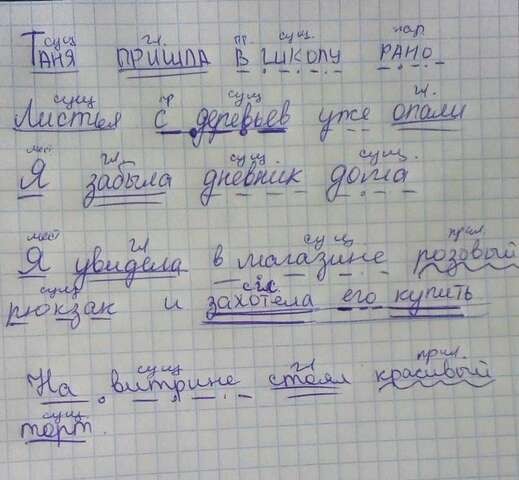 сущ гл. пр. сущ. нар.
Таня пришла в школу рано
сущ пр сущ гл.
Листья с деревьев уже опали
мест гл. сущ. сущ.
Я забыла дневник дома
мест гл сущ прил.
Я увидела в магазине розовый
сущ
рюкзак и захотела его купить
сущ гл прил.
На витрине стоял красивый
сущ
торт.